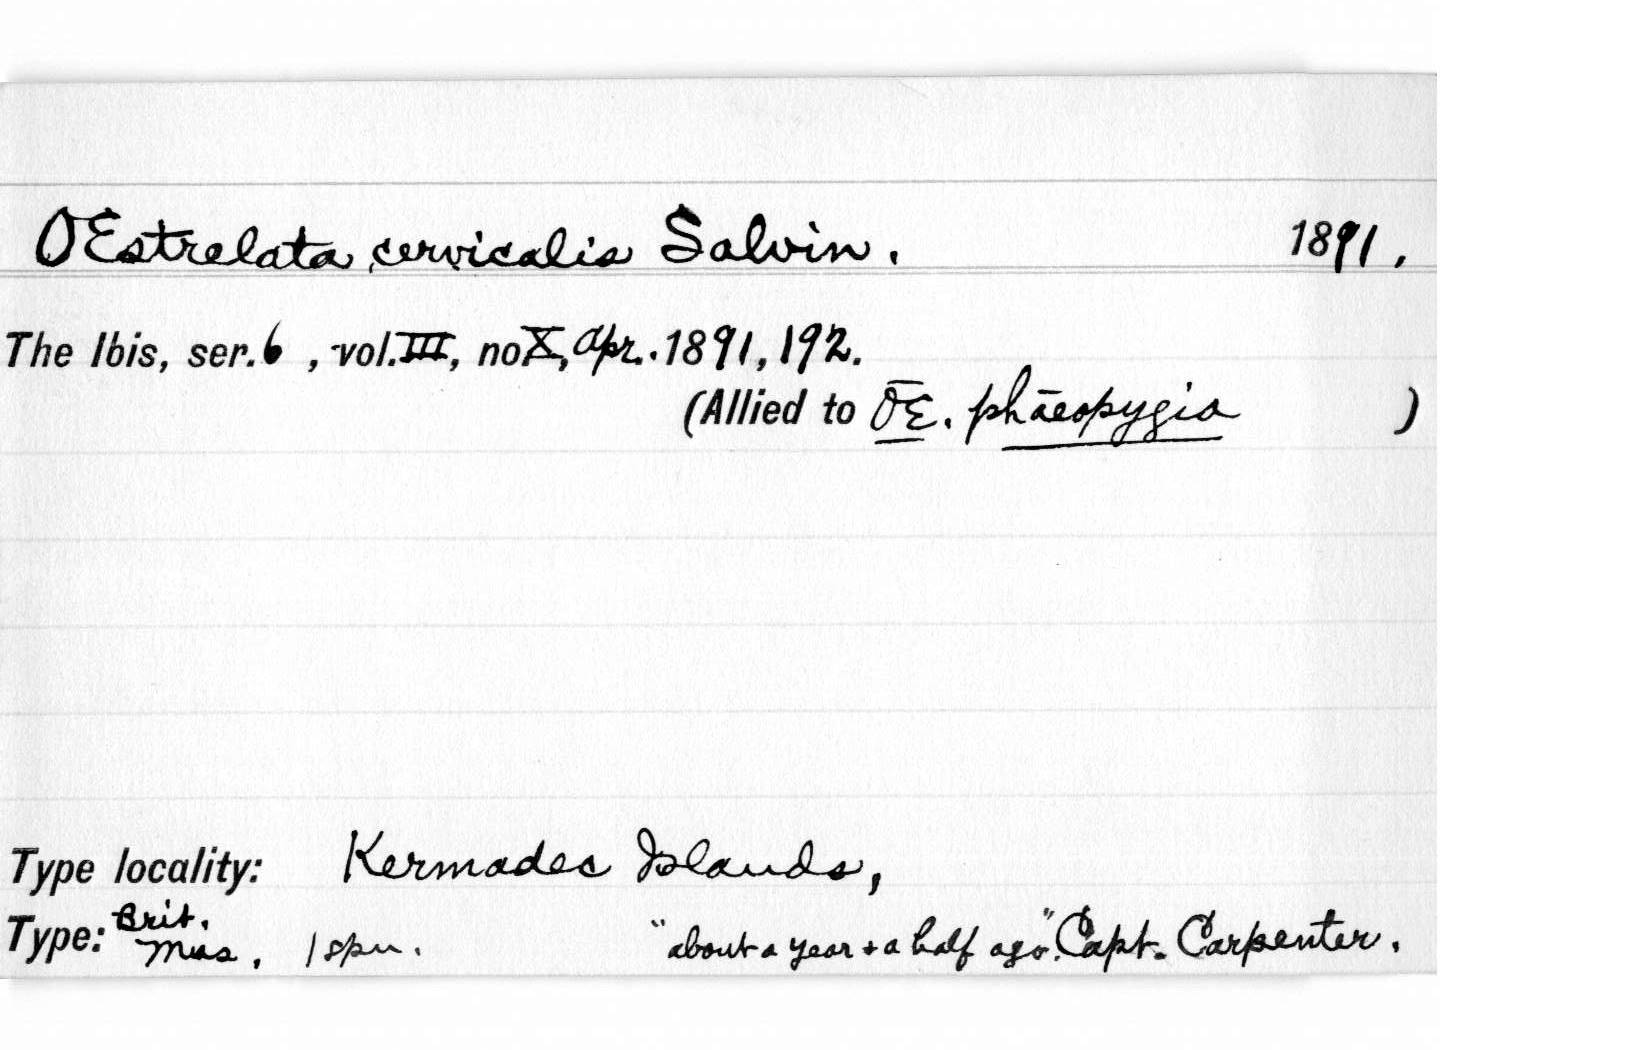 OEstrelata cervicalis Salvin. 1891.
The Ibis, ser. 6, vol. III, no X, Apr. 1891, 192.
(Allied to OE. phaeopygia )
Type locality: Kermadec Islands,
Type: Brit. Mus. 1 spn. "about a year + a half ago". Capt. Carpenter.